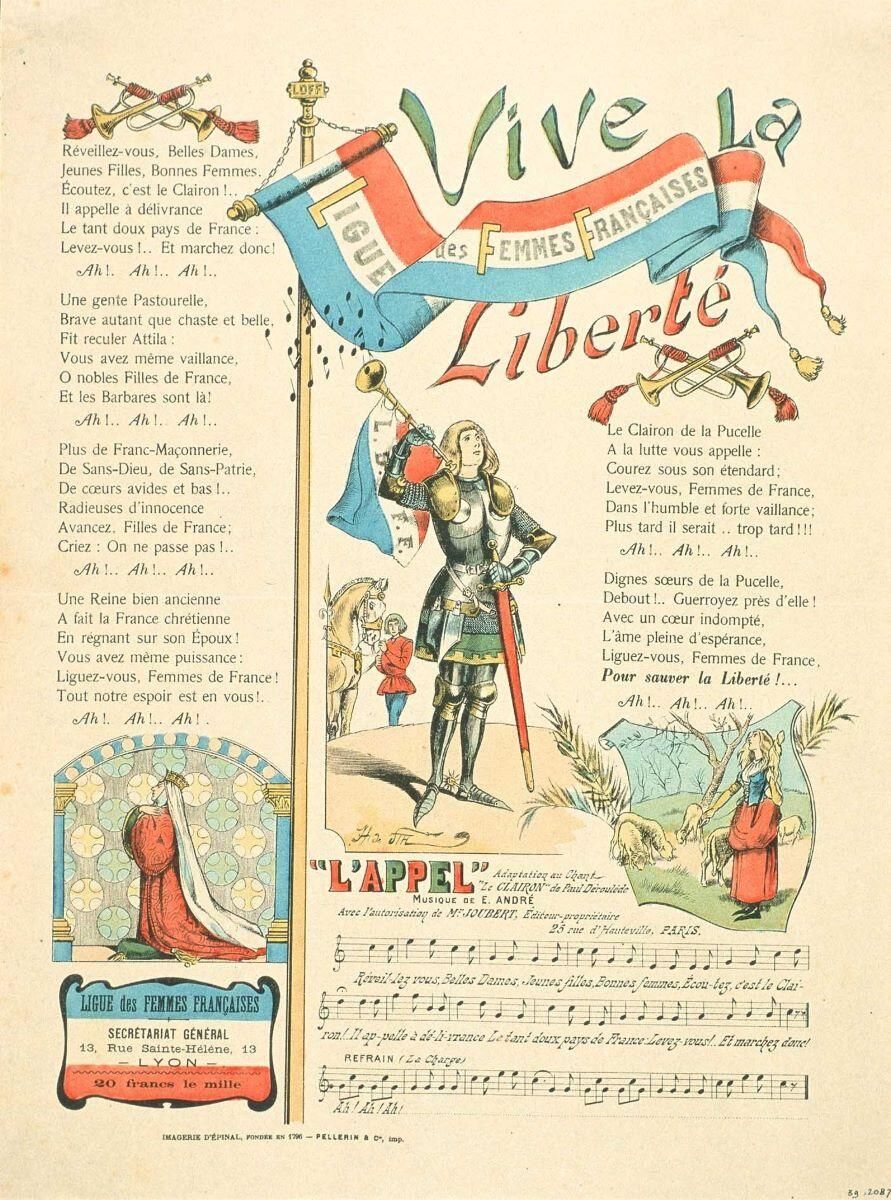 LDFF
Vive La
LIGUE des FEMMES FRANÇAISES
Liberté
Réveillez-vous, Belles Dames,
Jeunes Filles, Bonnes Femmes.
Écoutez, c'est le Clairon !..
Il appelle à délivrance
Le tant doux pays de France :
Levez-vous !.. Et marchez donc!
Ah !. Ah !.. Ah !..
Une gente Pastourelle,
Brave autant que chaste et belle,
Fit reculer Attila :
Vous avez même vaillance,
O nobles Filles de France,
Et les Barbares sont là!
Ah !.. Ah !. Ah !..
Plus de Franc-Maçonnerie,
De Sans-Dieu, de Sans-Patrie,
De cœurs avides et bas !..
Radieuses d'innocence
Avancez, Filles de France;
Criez : On ne passe pas !..
Ah !.. Ah !.. Ah !..
Une Reine bien ancienne
A fait la France chrétienne
En régnant sur son Époux!
Vous avez même puissance:
Liguez-vous, Femmes de France!
Tout notre espoir est en vous!..
Ah !. Ah !.. Ah ! .
L. D. F. F.
Le Clairon de la Pucelle
A la lutte vous appelle :
Courez sous son étendard;
Levez-vous, Femmes de France,
Dans l'humble et forte vaillance;
Plus tard il serait .. trop tard !!!
Ah !.. Ah !.. Ah !..
Dignes sœurs de la Pucelle,
Debout !.. Guerroyez près d'elle !
Avec un cœur indompté,
L'âme pleine d'espérance,
Liguez-vous, Femmes de France,
Pour sauver la Liberté !...
Ah !.. Ah !.. Ah !..
"L'APPEL" Adaptation au Chant
"Le CLAIRON" de Paul Déroulède
MUSIQUE DE E. ANDRÉ
Avec l'autorisation de Mr JOUBERT, Editeur-propriétaire
25 rue d'Hauteville, PARIS.
Réveil-lez vous, Belles Dames, Jeunes filles, Bonnes femmes, Écou-tez, c'est le Clai-
ron!. Il ap-pelle à dé-li-vrance Le tant doux pays de France: Levez-vous!.. Et marchez donc!
REFRAIN (La Charge)
Ah! Ah! Ah!
LIGUE des FEMMES FRANÇAISES
SECRÉTARIAT GÉNÉRAL
13, Rue Sainte-Hélène, 13
— LYON —
20 francs le mille
IMAGERIE D'ÉPINAL, FONDÉE EN 1796 — PELLERIN & Cie, imp.